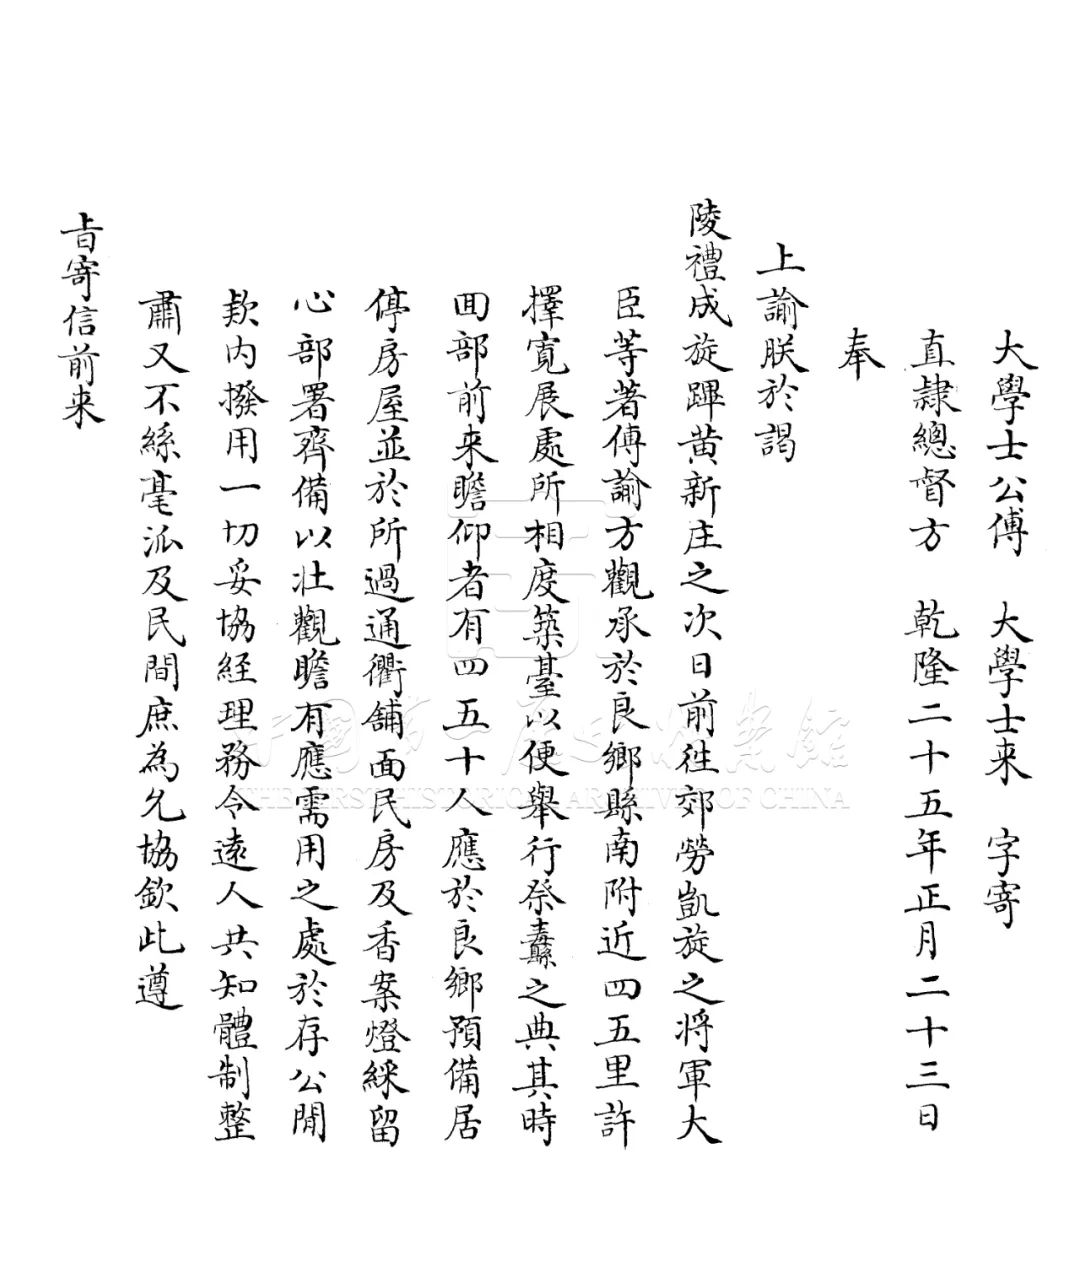 大學士公傅　大學士来　字寄
直隸總督方　乾隆二十五年正月二十三日
奉
上諭朕於謁
陵禮成旋蹕黄新庄之次日前徃郊勞凱旋之將軍大
臣等著傳諭方觀承於良鄉縣南附近四五里許
擇寛展處所相度築臺以便舉行祭纛之典其時
囬部前来瞻仰者有四五十人應於良鄉預備居
停房屋並於所過通衢舖面民房及香案燈綵留
心部署齊備以壯觀瞻有應需用之處於存公閒
欵内撥用一切妥協経理務令遠人共知體制整
肅又不絲毫派及民間庶為允協欽此遵
旨寄信前来
中國第一歷史檔案館
THE FIRST HISTORICAL ARCHIVES OF CHINA